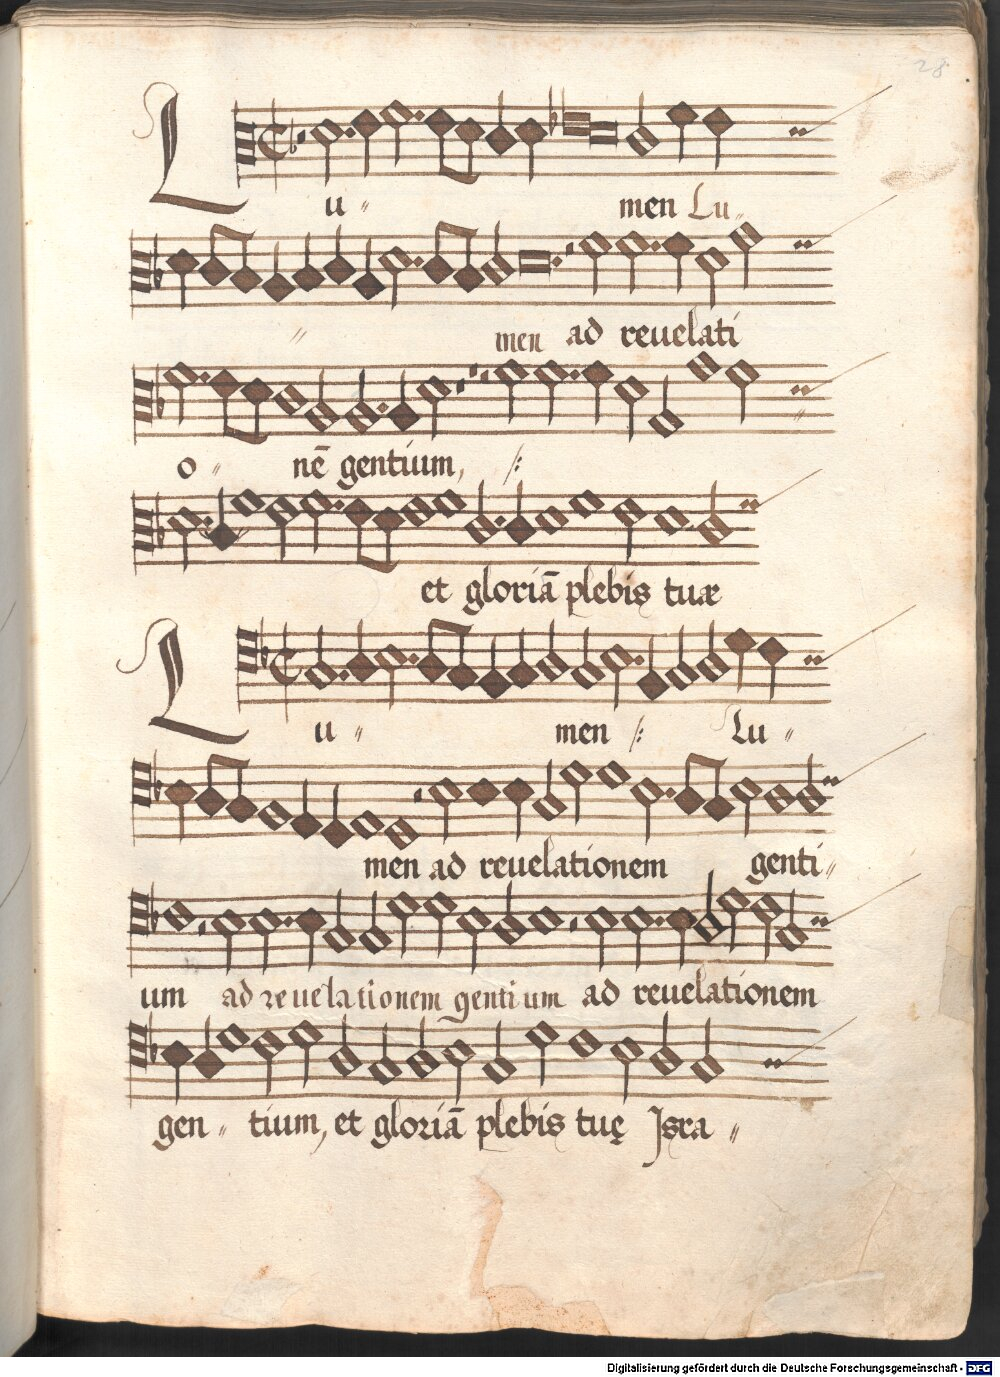 28
Lu〃 men Lu〃
〃 men ad reuelati
o〃 nē gentium, :/:
et gloriā plebis tuæ
Lu〃 men :/: Lu〃
men ad reuelationem genti〃
um ad reuelationem gentium ad reuelationem
gen〃 tium, et gloriā plebis tuę Jsra〃
Digitalisierung gefördert durch die Deutsche Forschungsgemeinschaft - DFG